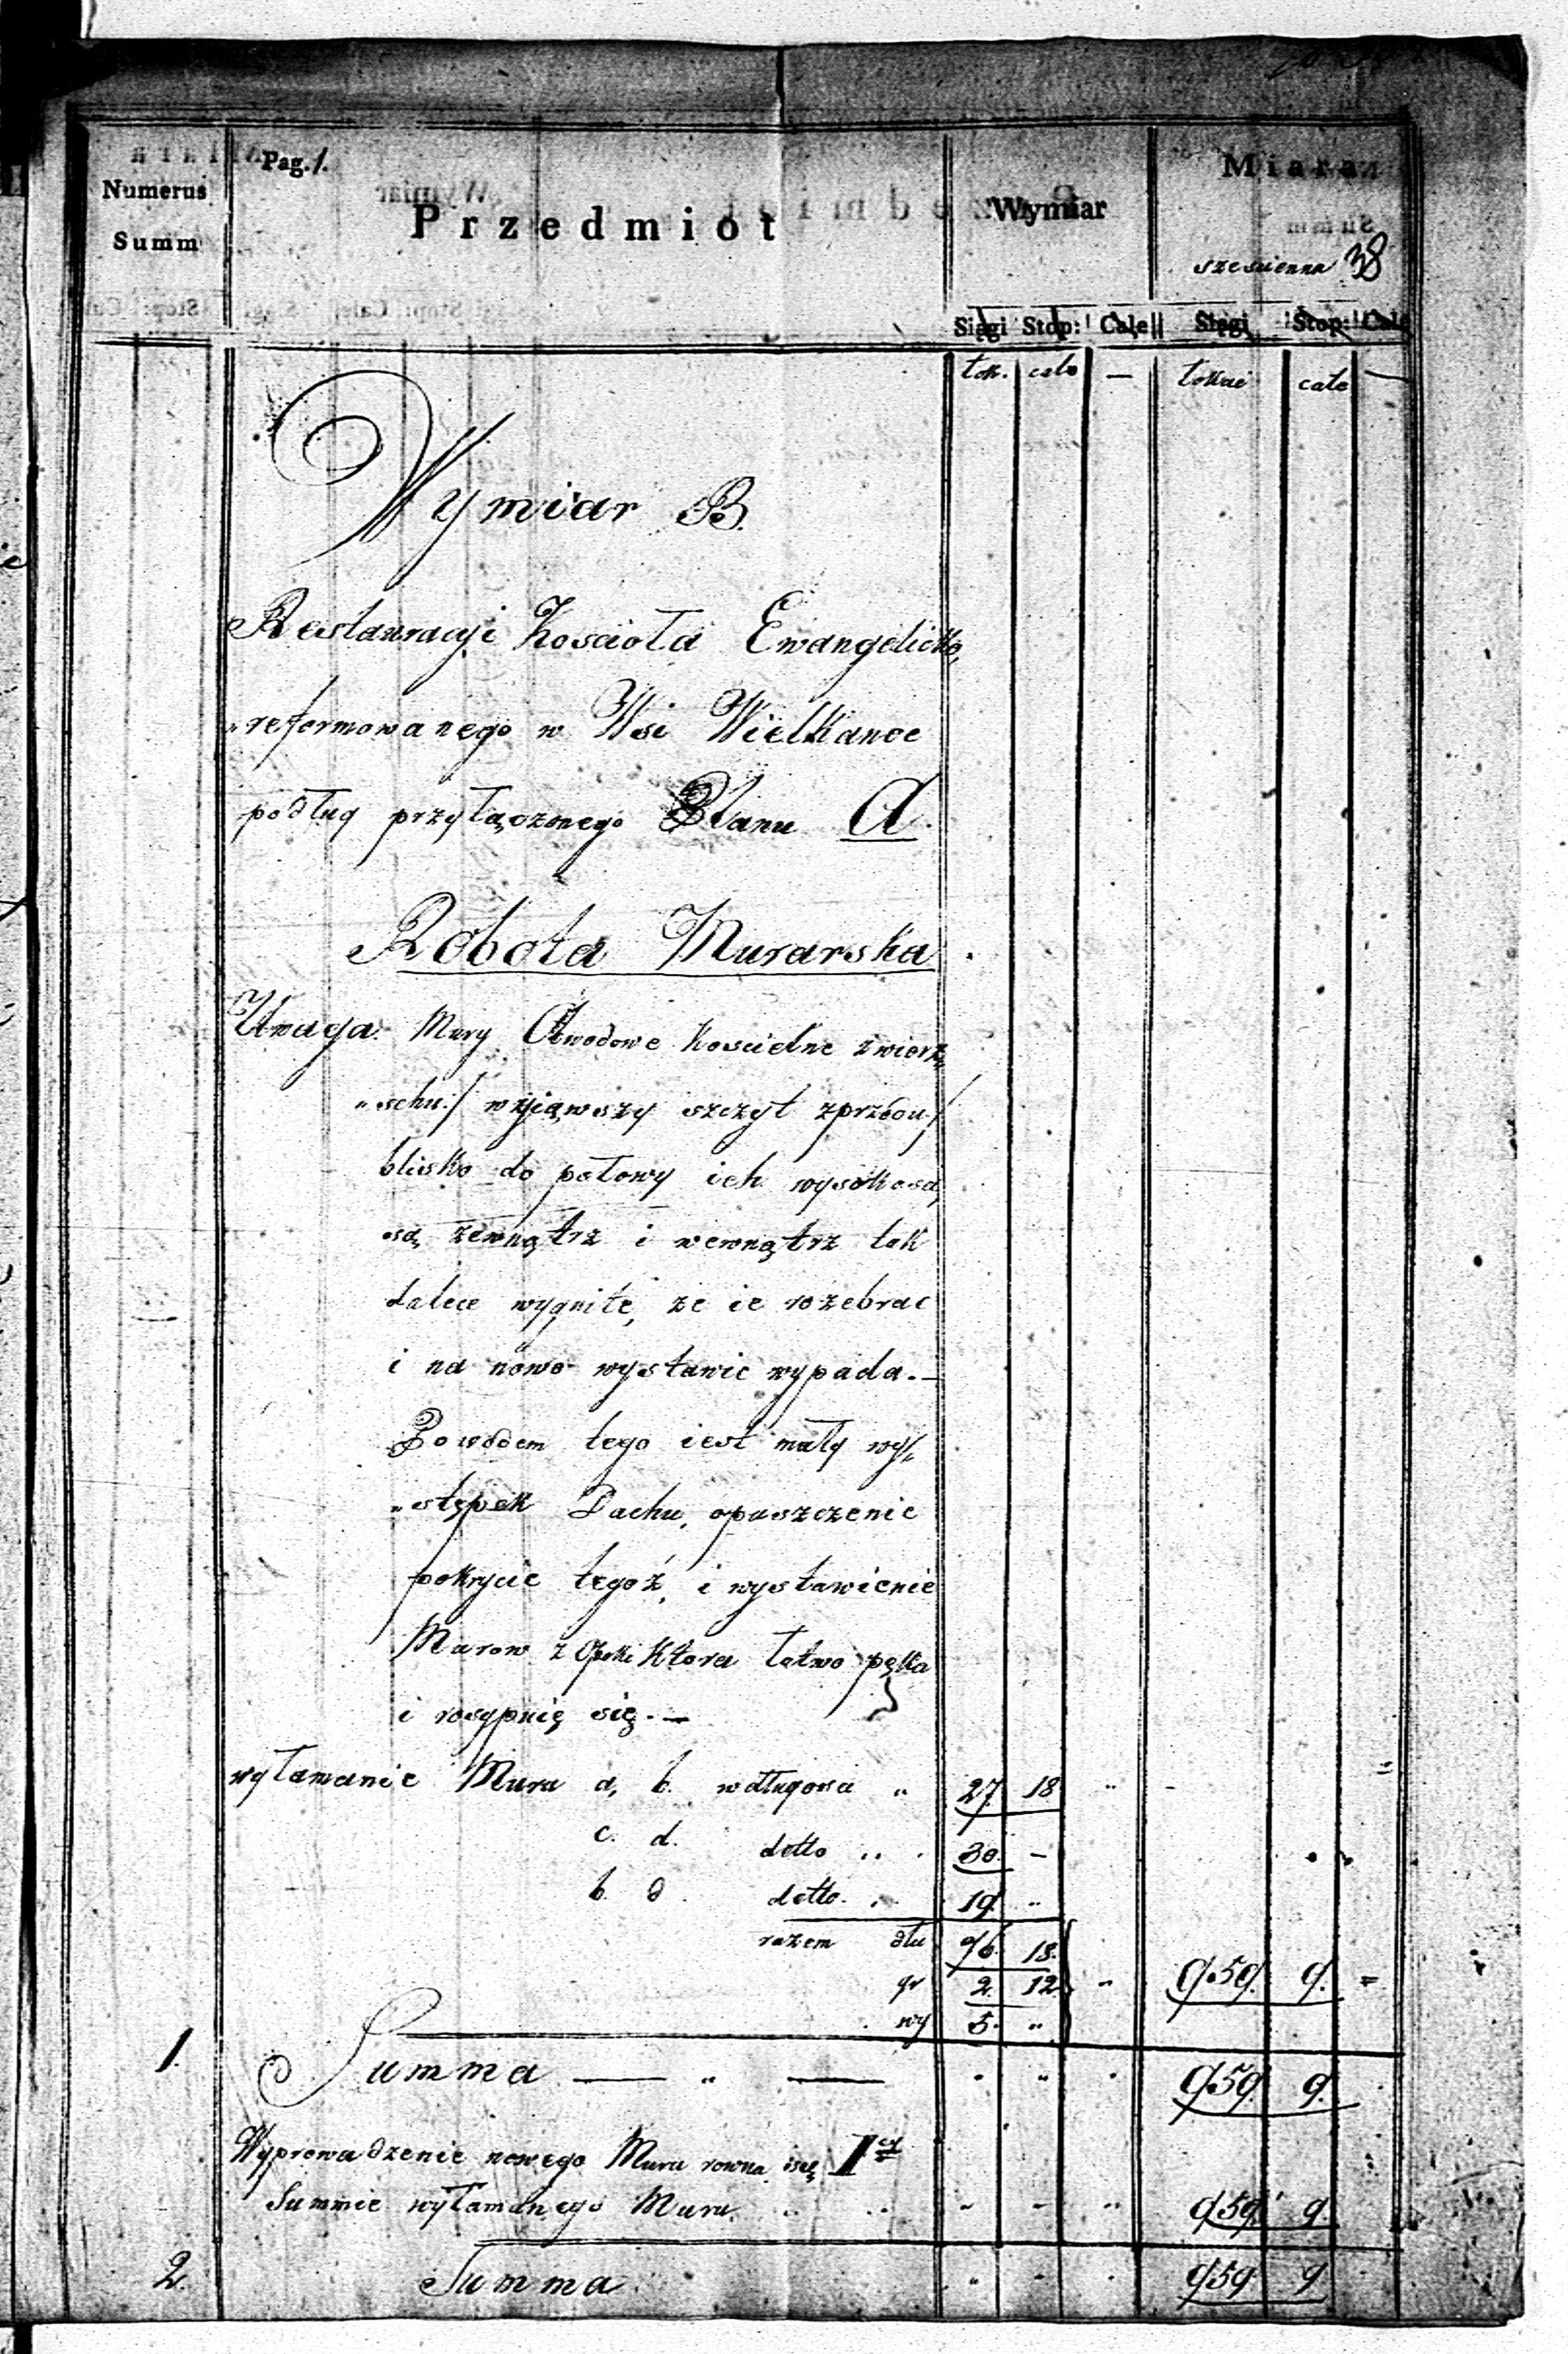 Pag. 1.
Numerus Summ
Przedmiot
Wymiar
Miara
szescienna 38
Siągi Stop: Cale Siągi Stop: Cale
łok. cale — łokcie cale —
Wymiar B.
Restauracyi Koscioła Ewangelicko,
„reformowanego w Wsi Wielkanoc
podług przyłączonego Planu A.
Robota Murarska.
Uwaga. Mury Obwodowe Koscielne zwierz,
„schu./ wyiąwszy szczyt zprzodu/
blisko do połowy ich wysokosci,
są zewnątrz i wewnątrz tak
dalece wygniłe, ze ie rozebrac
i na nowo wystawic wypada.—
Powodem tego iest mały wy„
„stępek Dachu, opuszczenie
pokrycie tegoż, i wystawienie
Murow z Opoki Ktora łatwo pęka
i rosypuię się.—
wyłamanie Muru a, b. wdługosci „ 27. 18 „ -
c. d. detto „ . 30. –
b. d. detto. „ 19. „
razem dłu 76. 18.
gr 2. 12. „ 959. 9. =
wy 5. „
1. Summa — „ — „ „ „ 959. 9.
Wyprowadzenie nowego Muru rowna się I<sup>ey</sup>
Summie wyłamanego Muru. „ „ „ „ „ 959. 9
2. Summa „ „ „ 959 9